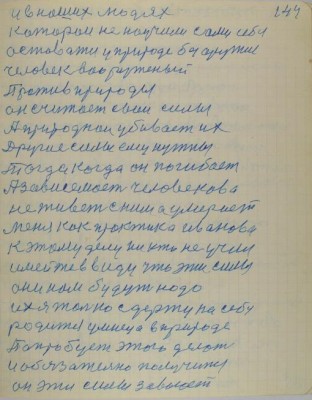 144
и в наших людях
Которои не научили сами себя
оставати у природе без оружие
человек вооруженый
Против природы
он считает свои силы
А природнои убивает их
Другие силы ему нужны
Тогда когда он погибает
А зависемост человекова
не живет с ним а умирает
Меня как практика иванова
К этому делу никто не учил
имейте в виду что эти силы
они нам будут надо
их я только держу на себе
родител у меня в природе
Попробует этого делат
и обязателно получит
он эти силы